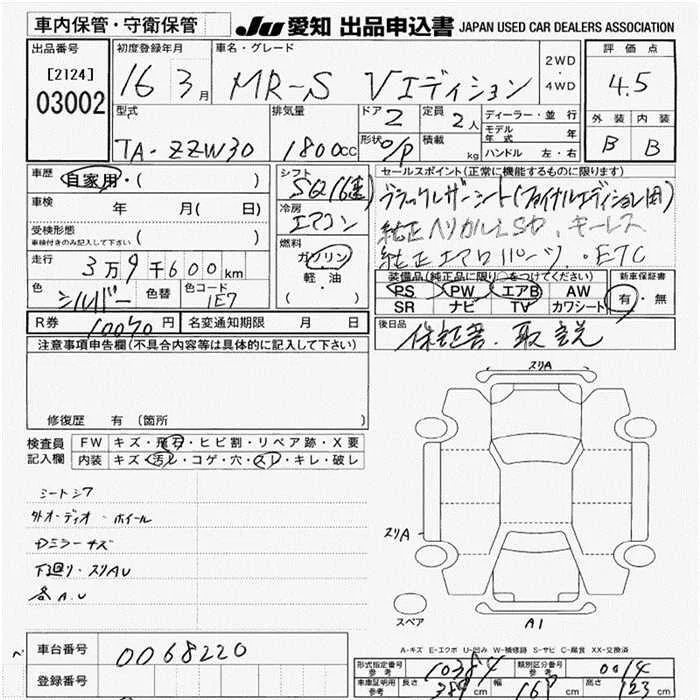 車内保管・守衛保管
JU 愛知 出品申込書 JAPAN USED CAR DEALERS ASSOCIATION
出品番号
[2124]
03002
初度登録年月
16 3月
車名・グレード
MR-S Vエディション
2WD
・
4WD
評価点
4.5
外装 内装
B B
型式
TA-ZZW30
排気量
1800cc
ドア 2
形状 O/P
定員 2人
積載 kg
ディーラー・並行
モデル年式 年
ハンドル 左・右
車歴 自家用・( )
車検 年 月( 日)
受検形態
車検付きのみ記入して下さい ( )
走行 3万9千600km
色 シルバー 色替 色コード 1E7
シフト
SQ(6速)
冷房
エアコン
燃料
ガソリン
軽・油
( )
セールスポイント(正常に機能するものに限ります)
ブラックレザーシート(ファイナルエディション用)
純正ヘリカルLSD、キーレス
純正エアロパーツ・ETC
装備品(純正品に限り○をつけてください)
PS PW エアB AW
SR ナビ TV カワシート
新車保証書
有・無
R券 10070円 名変通知期限 月 日
後日品 保証書・取説
注意事項申告欄(不具合内容等は具体的に記入して下さい)
修復歴 有 (箇所 )
検査員記入欄
FW キズ・飛石・ヒビ割・リペア跡・X要
内装 キズ・汚レ・コゲ・穴・スレ・キレ・破レ
シートシワ
外オーディオ・ホイール
Dミラーキズ
下廻り・スリAU
各A.U
スリA
スリA
A1
スペア
A-キズ E-エクボ U-凹み W-補修跡 S-サビ C-腐食 XX-交換済
車台番号 0068220
登録番号
形式指定番号 参考 10384
類別区分番号 参考 0014
車庫証明用 参考 長さ 389cm 幅 169cm 高さ 123cm